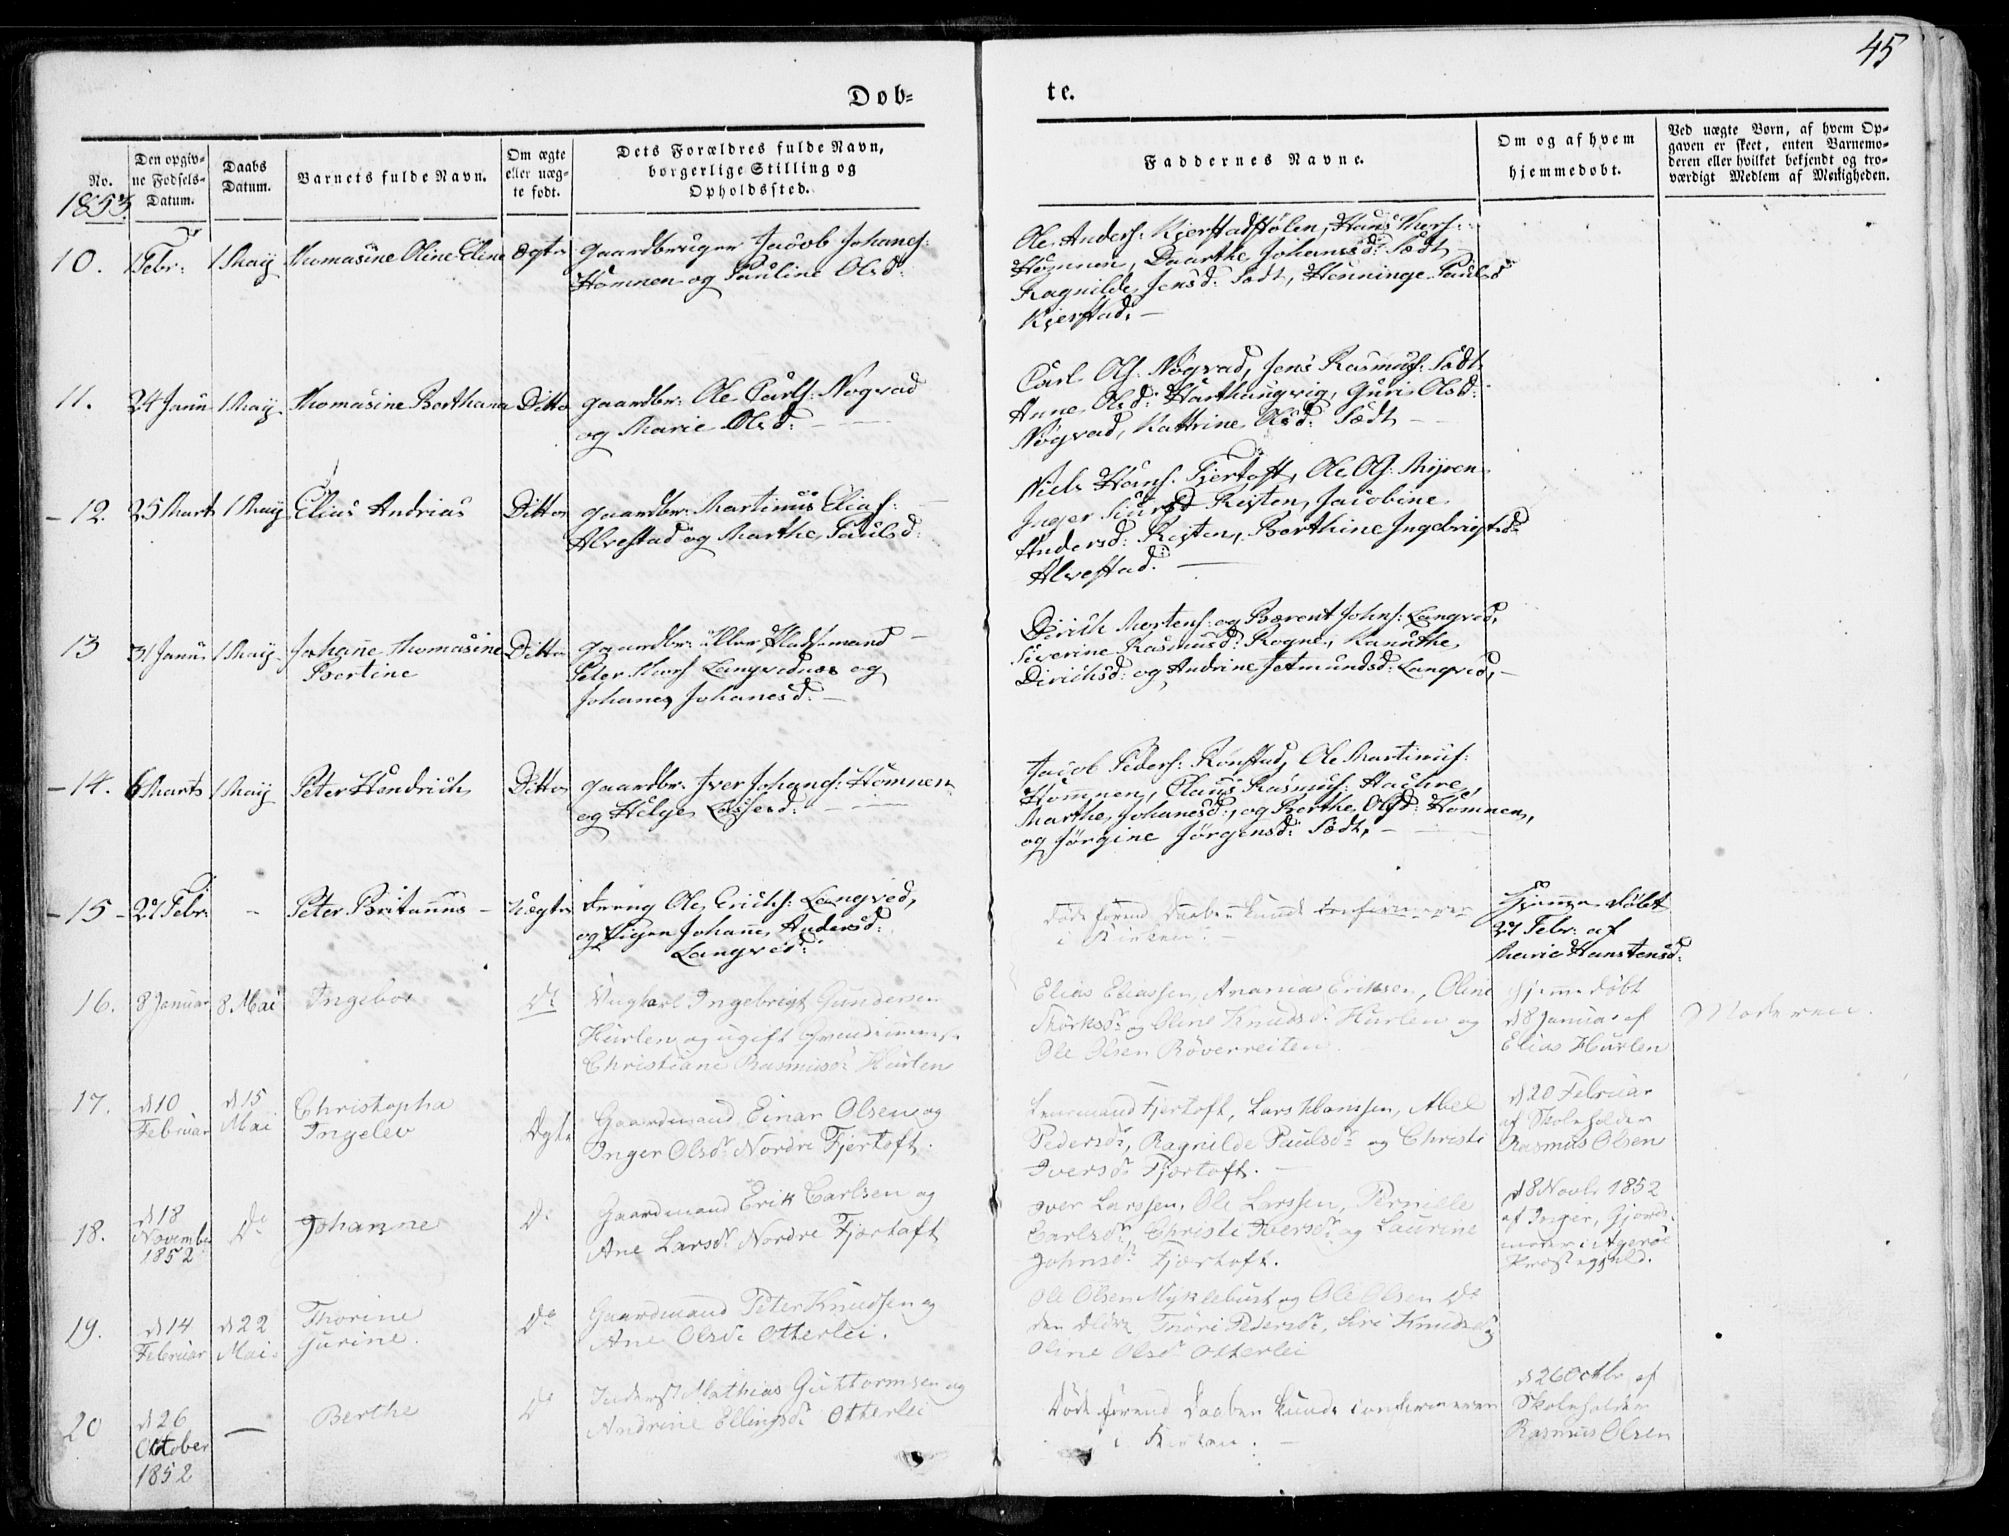 45
Dob=
te.
No.
Den opgiv=
ne Fodsels=
Datum.
Daabs
Datum.
Barnets fulde Navn.
Om ægte
eller uæg=
te født.
Dets Forældres fulde Navn,
borgerlige Stilling og
Opholdssted.
Faddernes Navne.
Om og af hvem
hjemmedobt.
Ved uægte Born, af hvem Op=
gaven er skeet, enten Barnemo=
deren eller hvilket bekjendt og tro=
værdigt Medlem af Menigheden.
1853
10. 1 Febr: 1 May Thomasine Oline Eline Ægte Gaardbruger Jacob Johanes:
Homnen og Pauline Olsd:
Ole Anders: Kjerstadstølen, Hans
Homnen, Johanesd: Sødt
Ragnilde Jensd: Sødt, Henninge Paulsd
Kjerstad. —
11. 24 Janu 1 May Thomasine Berthana Ditto gaardbr: Ole Carls: Nogvad
og Marie Olsd: —
Carl Ols: Nogvad, Jens Rasmus: Sødt
Anne Olsd: Harthaugvig, Guri Olsd:
Nogvad, Kattrine Olsd: Sødt —
12. 25 Marts 1 May Elias Andrias Ditto gaardbr: Martinus Elias:
Alvestad og Marthe Paulsd:
Niels Hans: Fjertoft, Ole Ols: Myren
Inger Resten, Jacobine
Andersd: Resten, Berthine Ingebrigtsd:
Alvestad. —
13 31 Janu 1 May Johane Thomasine Ditto gaardbr: eller Pladsemand
Bertine Peter Langvednes og
Johane Johanesd: —
Dirich Mortens: og Berent Johns: Langved,
Siverine Rasmusd: Rogne, Kanuthe
Dirichsd: og Andrine Jetmundsd: Langved, —
14. 6 Marts 1 May Peter Hendrich Ditto gaardbr: Iver Johanes: Homnen
og Helge
Jacob Peders: Rønstad, Ole Martinus:
Homnen, Claus Rasmus:
Marthe Johanesd:, og Berthe Olsd: Homnen,
og Jørgine Jørgensd: Sødt, —
15 27 Febr: - Peter Britanus — Uægte Dreng Ole Erichs: Langved,
og Pigen Johane Andersd:
Langved:
Døde førend Daaben kunde confirmeres
i Kirken. —
Hjemme døbt
27 Febr: af
Marie Hanstensd:
16. 8 Januar 8 Mai Ingebor Do Ungkarl Ingebrigt Gundersen
Hurlen og ugift
Christiane Rasmusdr Hurlen
Elias Eliassen, Ananias Eriksen, Oline
og Oline Knudsdr Hurlen og
Ole Olsen Røverreiten.
Hjemmedøbt
d 8 Januar af
Elias Hurlen
Moderen.
17. d 10
Februar
d 15
Mai
Christopha
Ingelev
Ægte
Gaardmand Einar Olsen og
Inger Olsdr Nordre Fjertoft.
Fjertoft, Lars Hanssen, Abel
Pedersdr, Ragnilde Paulsdr og Christi
Iversdr Fjærtoft. —
d 20 Februar
af Skoleholder
Rasmus Olsen
18. d 18
November
1852
Do
Johanne
Do
Gaardmand Erik Carlsen og
Ane Larsdr Nordre Fjærtoft
Iver Larssen, Ole Larssen, Pernille
Carlsdr, Christi Iversdr og Laurine
Johnsdr Fjærtoft.
d 8 Novbr 1852
af Inger, Gjord-
moder i Agerøe
Præstegjeld.
19. d 14
Februar
d 22
Mai
Thorine
Gurine.
Do
Gaardmand Peter Knudsen og
Ane Olsdr Otterlei.
Ole Olsen Myklebust og Ole Olsen Do
den ældre Thori Pedersdr, Siri Knudsdr og
Oline Olsdr Otterlei
20 d 26
Oktober
1852
—
Berthe
Do
Inderst Mathias Guttormsen og
Andrine Ellingsdr Otterlei
Døde førend Daaben kunde confirmeres
i Kirken. —
d 26 Octbr af
Skoleholder
Rasmus Olsen